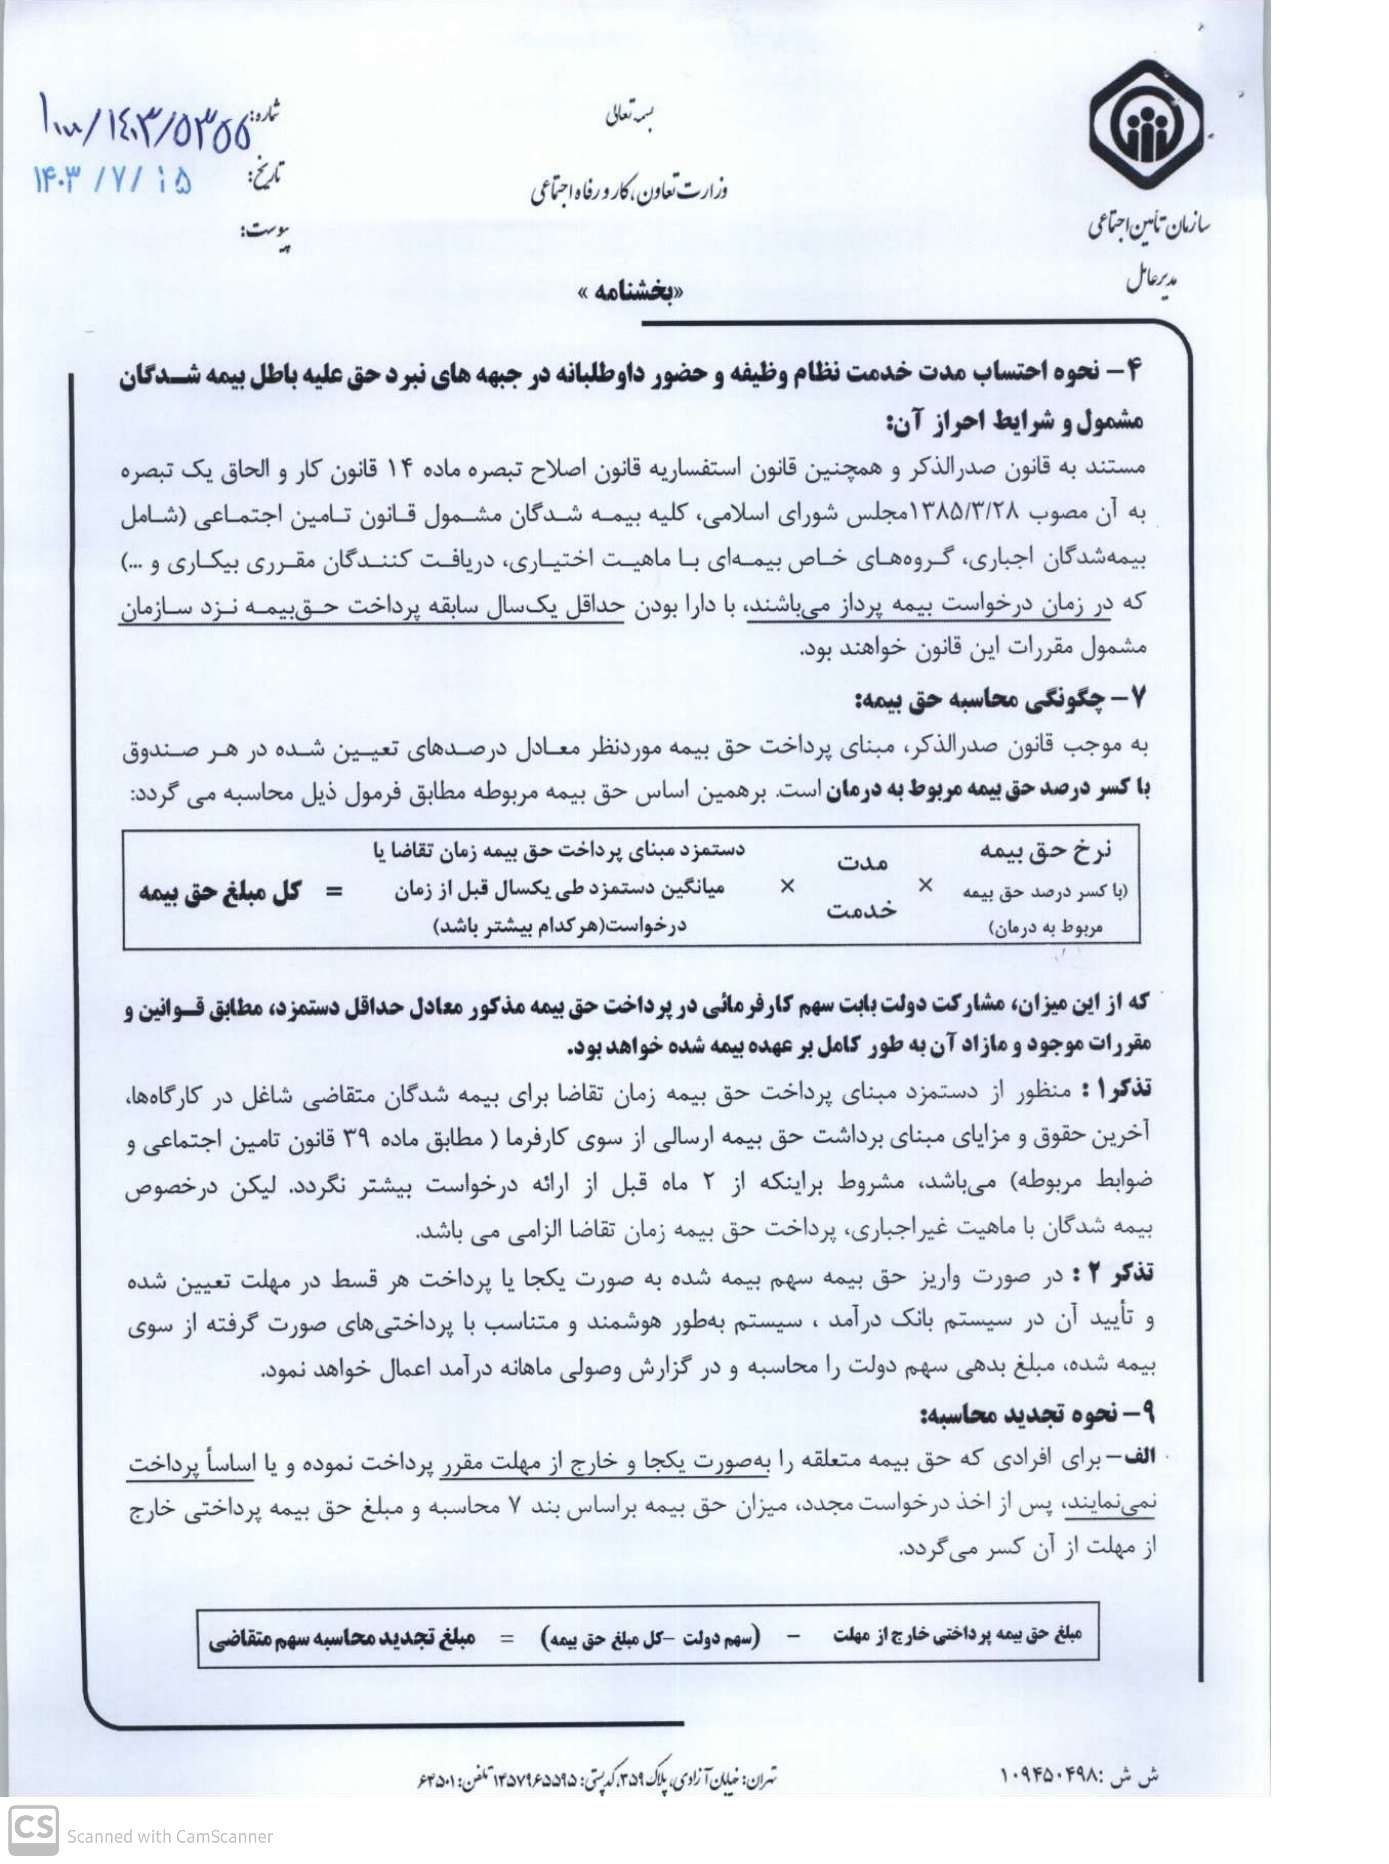 بسمه تعالی
وزارت تعاون، کار و رفاه اجتماعی
سازمان تأمین اجتماعی
مدیرعامل
شماره: ۱۰۰۰/۱۴۰۳/۵۳۵۵
تاریخ: ۱۴۰۳/۷/۱۵
پیوست:
«بخشنامه»
۴- نحوه احتساب مدت خدمت نظام وظیفه و حضور داوطلبانه در جبهه های نبرد حق علیه باطل بیمه شـدگان
مشمول و شرایط احراز آن:
مستند به قانون صدرالذکر و همچنین قانون استفساریه قانون اصلاح تبصره ماده ۱۴ قانون کار و الحاق یک تبصره
به آن مصوب ۱۳۸۵/۳/۲۸مجلس شورای اسلامی، کلیه بیمـه شـدگان مشـمول قـانون تـامین اجتمـاعی (شـامل
بیمه‌شدگان اجباری، گـروه‌هـای خـاص بیمـه‌ای بـا ماهیـت اختیـاری، دریافـت کننـدگان مقـرری بیکـاری و ...)
که در زمان درخواست بیمه پرداز می‌باشند، با دارا بودن حداقل یک‌سال سابقه پرداخت حـق‌بیمـه نـزد سـازمان
مشمول مقررات این قانون خواهند بود.
۷- چگونگی محاسبه حق بیمه:
به موجب قانون صدرالذکر، مبنای پرداخت حق بیمه موردنظر معـادل درصـدهای تعیـین شـده در هـر صـندوق
با کسر درصد حق بیمه مربوط به درمان است. برهمین اساس حق بیمه مربوطه مطابق فرمول ذیل محاسبه می گردد:
نرخ حق بیمه
(با کسر درصد حق بیمه
مربوط به درمان)
×
مدت
خدمت
×
دستمزد مبنای پرداخت حق بیمه زمان تقاضا یا
میانگین دستمزد طی یکسال قبل از زمان
درخواست(هرکدام بیشتر باشد)
=
کل مبلغ حق بیمه
که از این میزان، مشارکت دولت بابت سهم کارفرمائی در پرداخت حق بیمه مذکور معادل حداقل دستمزد، مطابق قـوانین و
مقررات موجود و مازاد آن به طور کامل بر عهده بیمه شده خواهد بود.
تذکر۱ : منظور از دستمزد مبنای پرداخت حق بیمه زمان تقاضا برای بیمه شدگان متقاضی شاغل در کارگاه‌ها،
آخرین حقوق و مزایای مبنای برداشت حق بیمه ارسالی از سوی کارفرما ( مطابق ماده ۳۹ قانون تامین اجتماعی و
ضوابط مربوطه) می‌باشد، مشروط براینکه از ۲ ماه قبل از ارائه درخواست بیشتر نگردد. لیکن درخصوص
بیمه شدگان با ماهیت غیراجباری، پرداخت حق بیمه زمان تقاضا الزامی می باشد.
تذکر ۲ : در صورت واریز حق بیمه سهم بیمه شده به صورت یکجا یا پرداخت هر قسط در مهلت تعیین شده
و تأیید آن در سیستم بانک درآمد ، سیستم به‌طور هوشمند و متناسب با پرداختی‌های صورت گرفته از سوی
بیمه شده، مبلغ بدهی سهم دولت را محاسبه و در گزارش وصولی ماهانه درآمد اعمال خواهد نمود.
۹- نحوه تجدید محاسبه:
الف- برای افرادی که حق بیمه متعلقه را به‌صورت یکجا و خارج از مهلت مقرر پرداخت نموده و یا اساساً پرداخت
نمی‌نمایند، پس از اخذ درخواست مجدد، میزان حق بیمه براساس بند ۷ محاسبه و مبلغ حق بیمه پرداختی خارج
از مهلت از آن کسر می‌گردد.
مبلغ حق بیمه پرداختی خارج از مهلت - (سهم دولت -کل مبلغ حق بیمه) = مبلغ تجدید محاسبه سهم متقاضی
ش ش :۱۰۹۴۵۰۴۹۸
تهران: خیابان آزادی، پلاک ۳۵۹، کدپستی: ۱۴۵۷۹۶۵۵۹۵ تلفن: ۶۴۵۰۱
CS Scanned with CamScanner